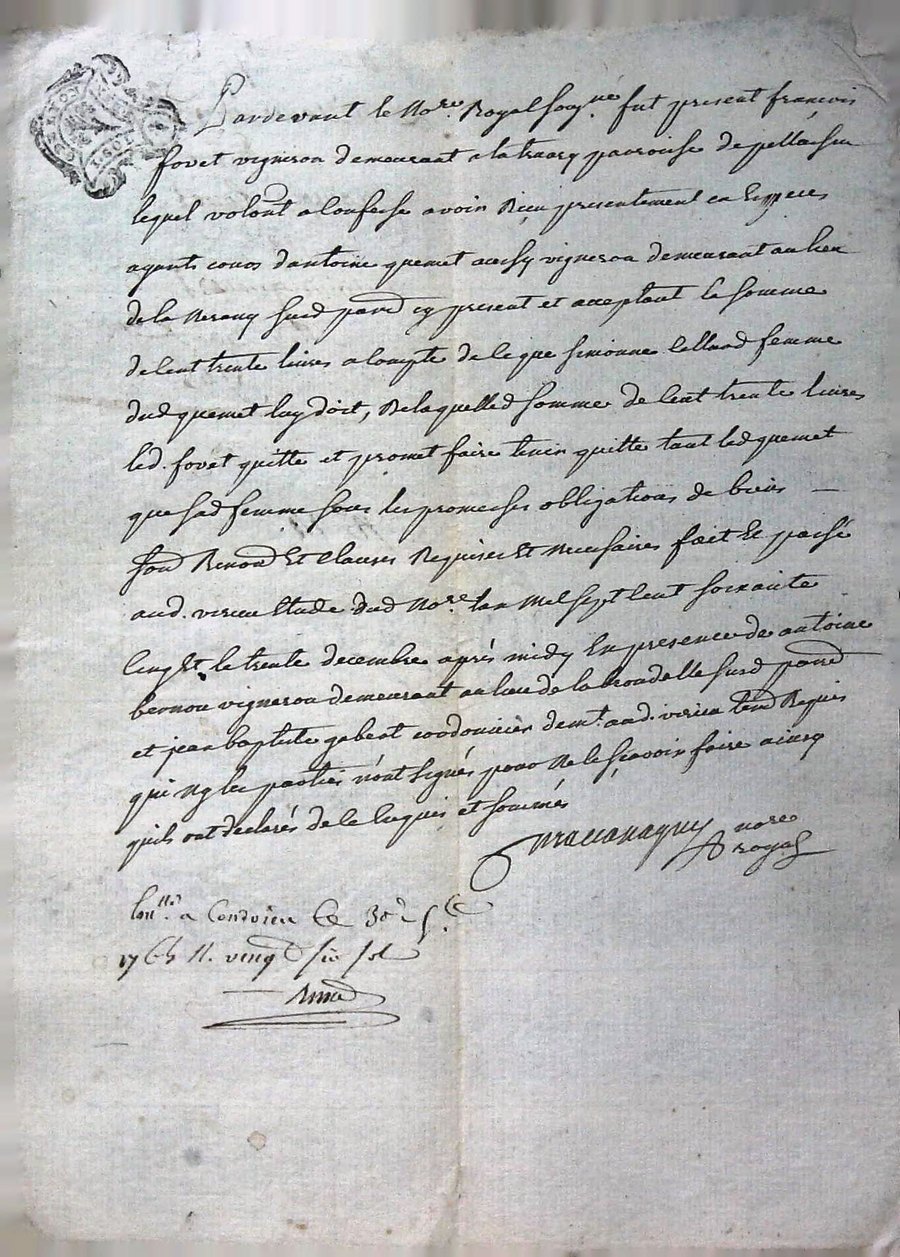 Pardevant le No.re Royal soug.né fut present françois
fovet vigneron demeurant a la parroisse de pellussin
lequel volont a confessé avoir Reçu presentement en Especes
ayants cours d'antoine quemet aussy vigneron demeurant au lieu
de la susd parr cy present et acceptant la somme
de cent trente livres a compte de ce que simonne femme
dud quemet luy doit, De laquelled somme de cent trente livres
led. fovet quitte et promet faire tenir quitte tant led quemet
que sad femme sous les promesses obligations de biens —
soud Renond Et clauses Requises Et Necessaires fait Et passé
aud. virieu Etude dud No.re lan Mil sept cent soixante
cinq Et le trente decembre aprés midy En presence de antoine
bernou vigneron demeurant au lieu de la susd parr
et jean baptiste gabert cordonnier dem.t aud. virieu tem Requis
qui Ny les parties n'ont signés pour Ne le sçavoir faire ainsy
quils ont declarés de ce Enquis et sommés
no.re
royal
Con.llé a Condrieu Ce 30 d
1765 R. vingt six sols